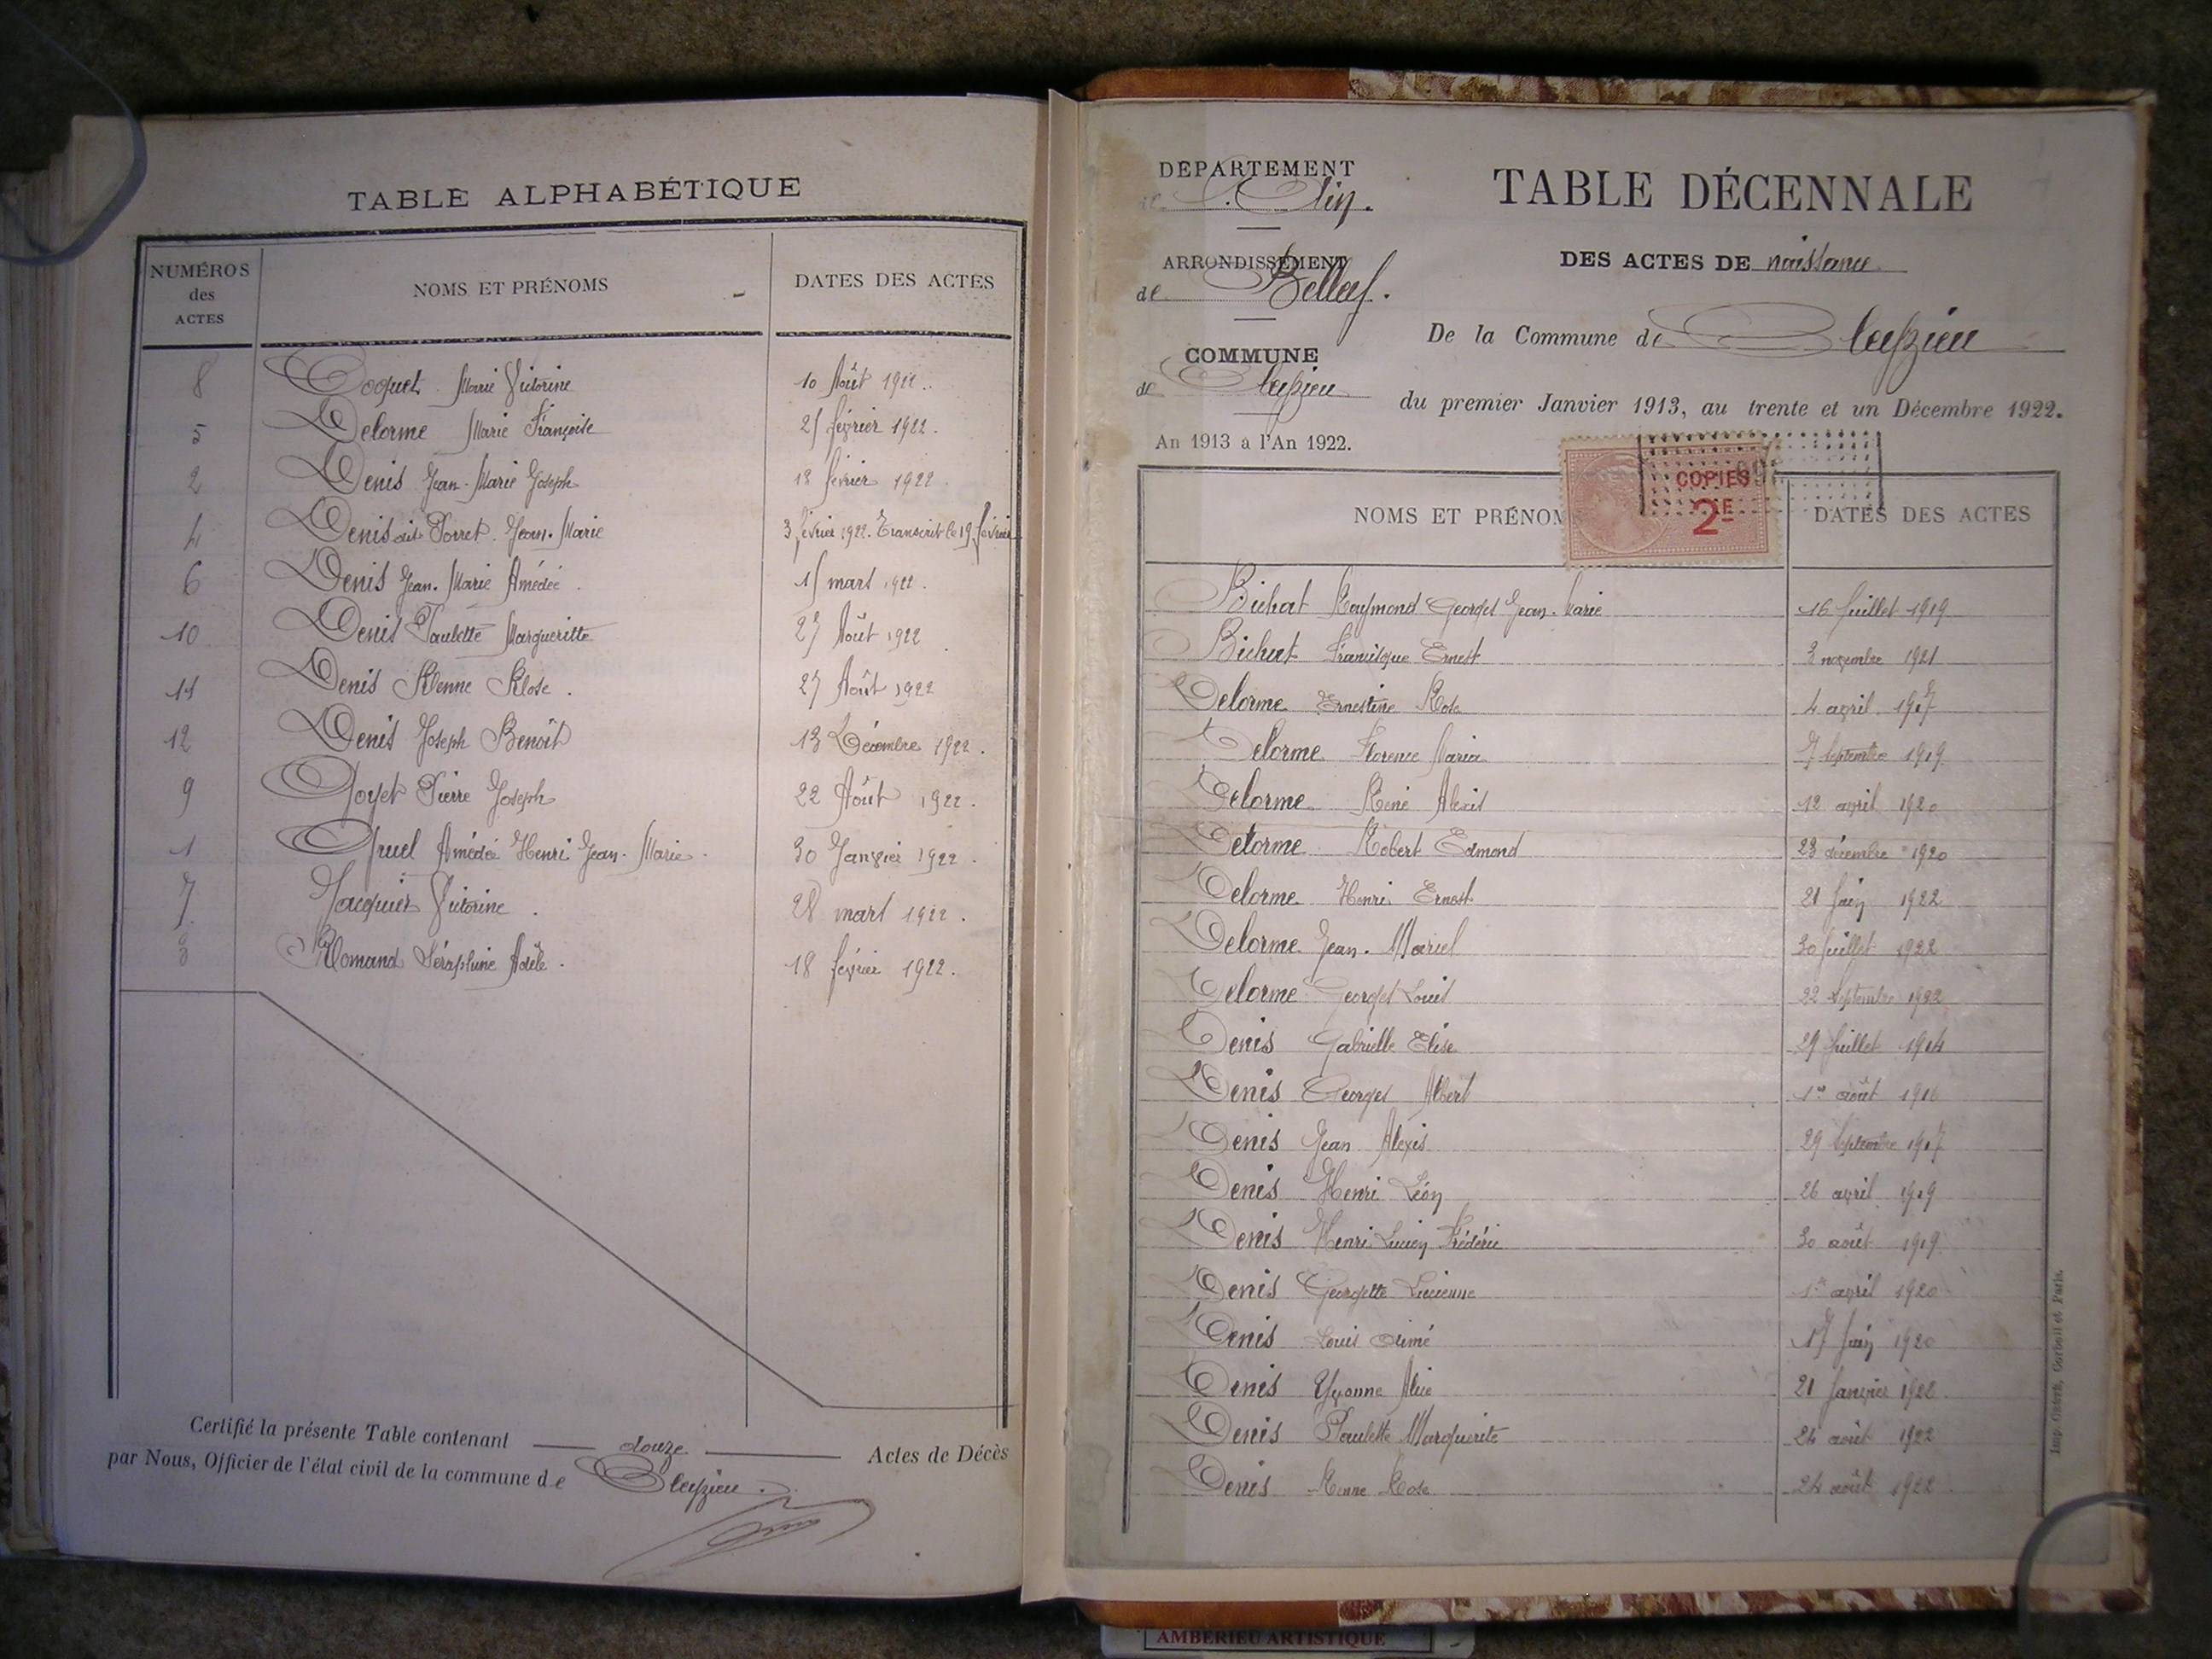 TABLE ALPHABÉTIQUE
NUMÉROS
des
ACTES
NOMS ET PRÉNOMS
DATES DES ACTES
8 Coquet Marie Victorine 10 Août 1922.
5 Delorme Marie Françoise février 1922.
2 Denis Jean-Marie Joseph février 1922
4 Denis dit Porret Jean-Marie 3 février 1922. Transcrit le 19 février
6 Denis Jean-Marie Amédée mars 1922.
10 Denis Paulette Margueritte 27 Août 1922
11 Denis Rose. 27 Août 1922
12 Denis Joseph Benoît 13 Décembre 1922.
9 Goyet Pierre Joseph 22 Août 1922.
1 Gruel Amédée Henri Jean-Marie. 30 Janvier 1922.
7 Jacquier Victorine. 28 mars 1922.
3 Romand Séraphine Adèle. 18 février 1922.
Certifié la présente Table contenant douze Actes de Décès
par Nous, Officier de l'état civil de la commune de Cleyzieu.
DÉPARTEMENT
de l'Ain.
ARRONDISSEMENT
de Belley.
COMMUNE
de Cleyzieu
An 1913 à l'An 1922.
TABLE DÉCENNALE
DES ACTES DE naissance
De la Commune de Cleyzieu
du premier Janvier 1913, au trente et un Décembre 1922.
COPIES
2F
NOMS ET PRÉNOM
DATES DES ACTES
Bichat Raymond Georges Jean-Marie 16 Juillet 1919
Bichat Francisque Ernest 3 novembre 1921
Delorme Ernestine Rose 4 avril 1917
Delorme Florence Maria 7 Septembre 1919
Delorme René Alexis 12 avril 1920
Delorme Robert Edmond 23 décembre 1920
Delorme Henri Ernest 21 Juin 1922
Delorme Jean-Marcel 30 Juillet 1922
Delorme Georges Louis 22 Septembre 1922
Denis Gabrielle Elise 29 Juillet 1914
Denis Georges Albert 1er août 1916
Denis Jean Alexis 29 Septembre 1917
Denis Henri Léon 26 avril 1919
Denis Henri Lucien Frédéric 30 août 1919
Denis Georgette Lucienne 1er avril 1920
Denis Louis Aimé 17 Juin 1920
Denis Yvonne Alice 21 Janvier 1922
Denis Paulette Marguerite 24 août 1922
Denis Rose 24 août 1922
Corbeil et Paris.
AMBERIEU ARTISTIQUE